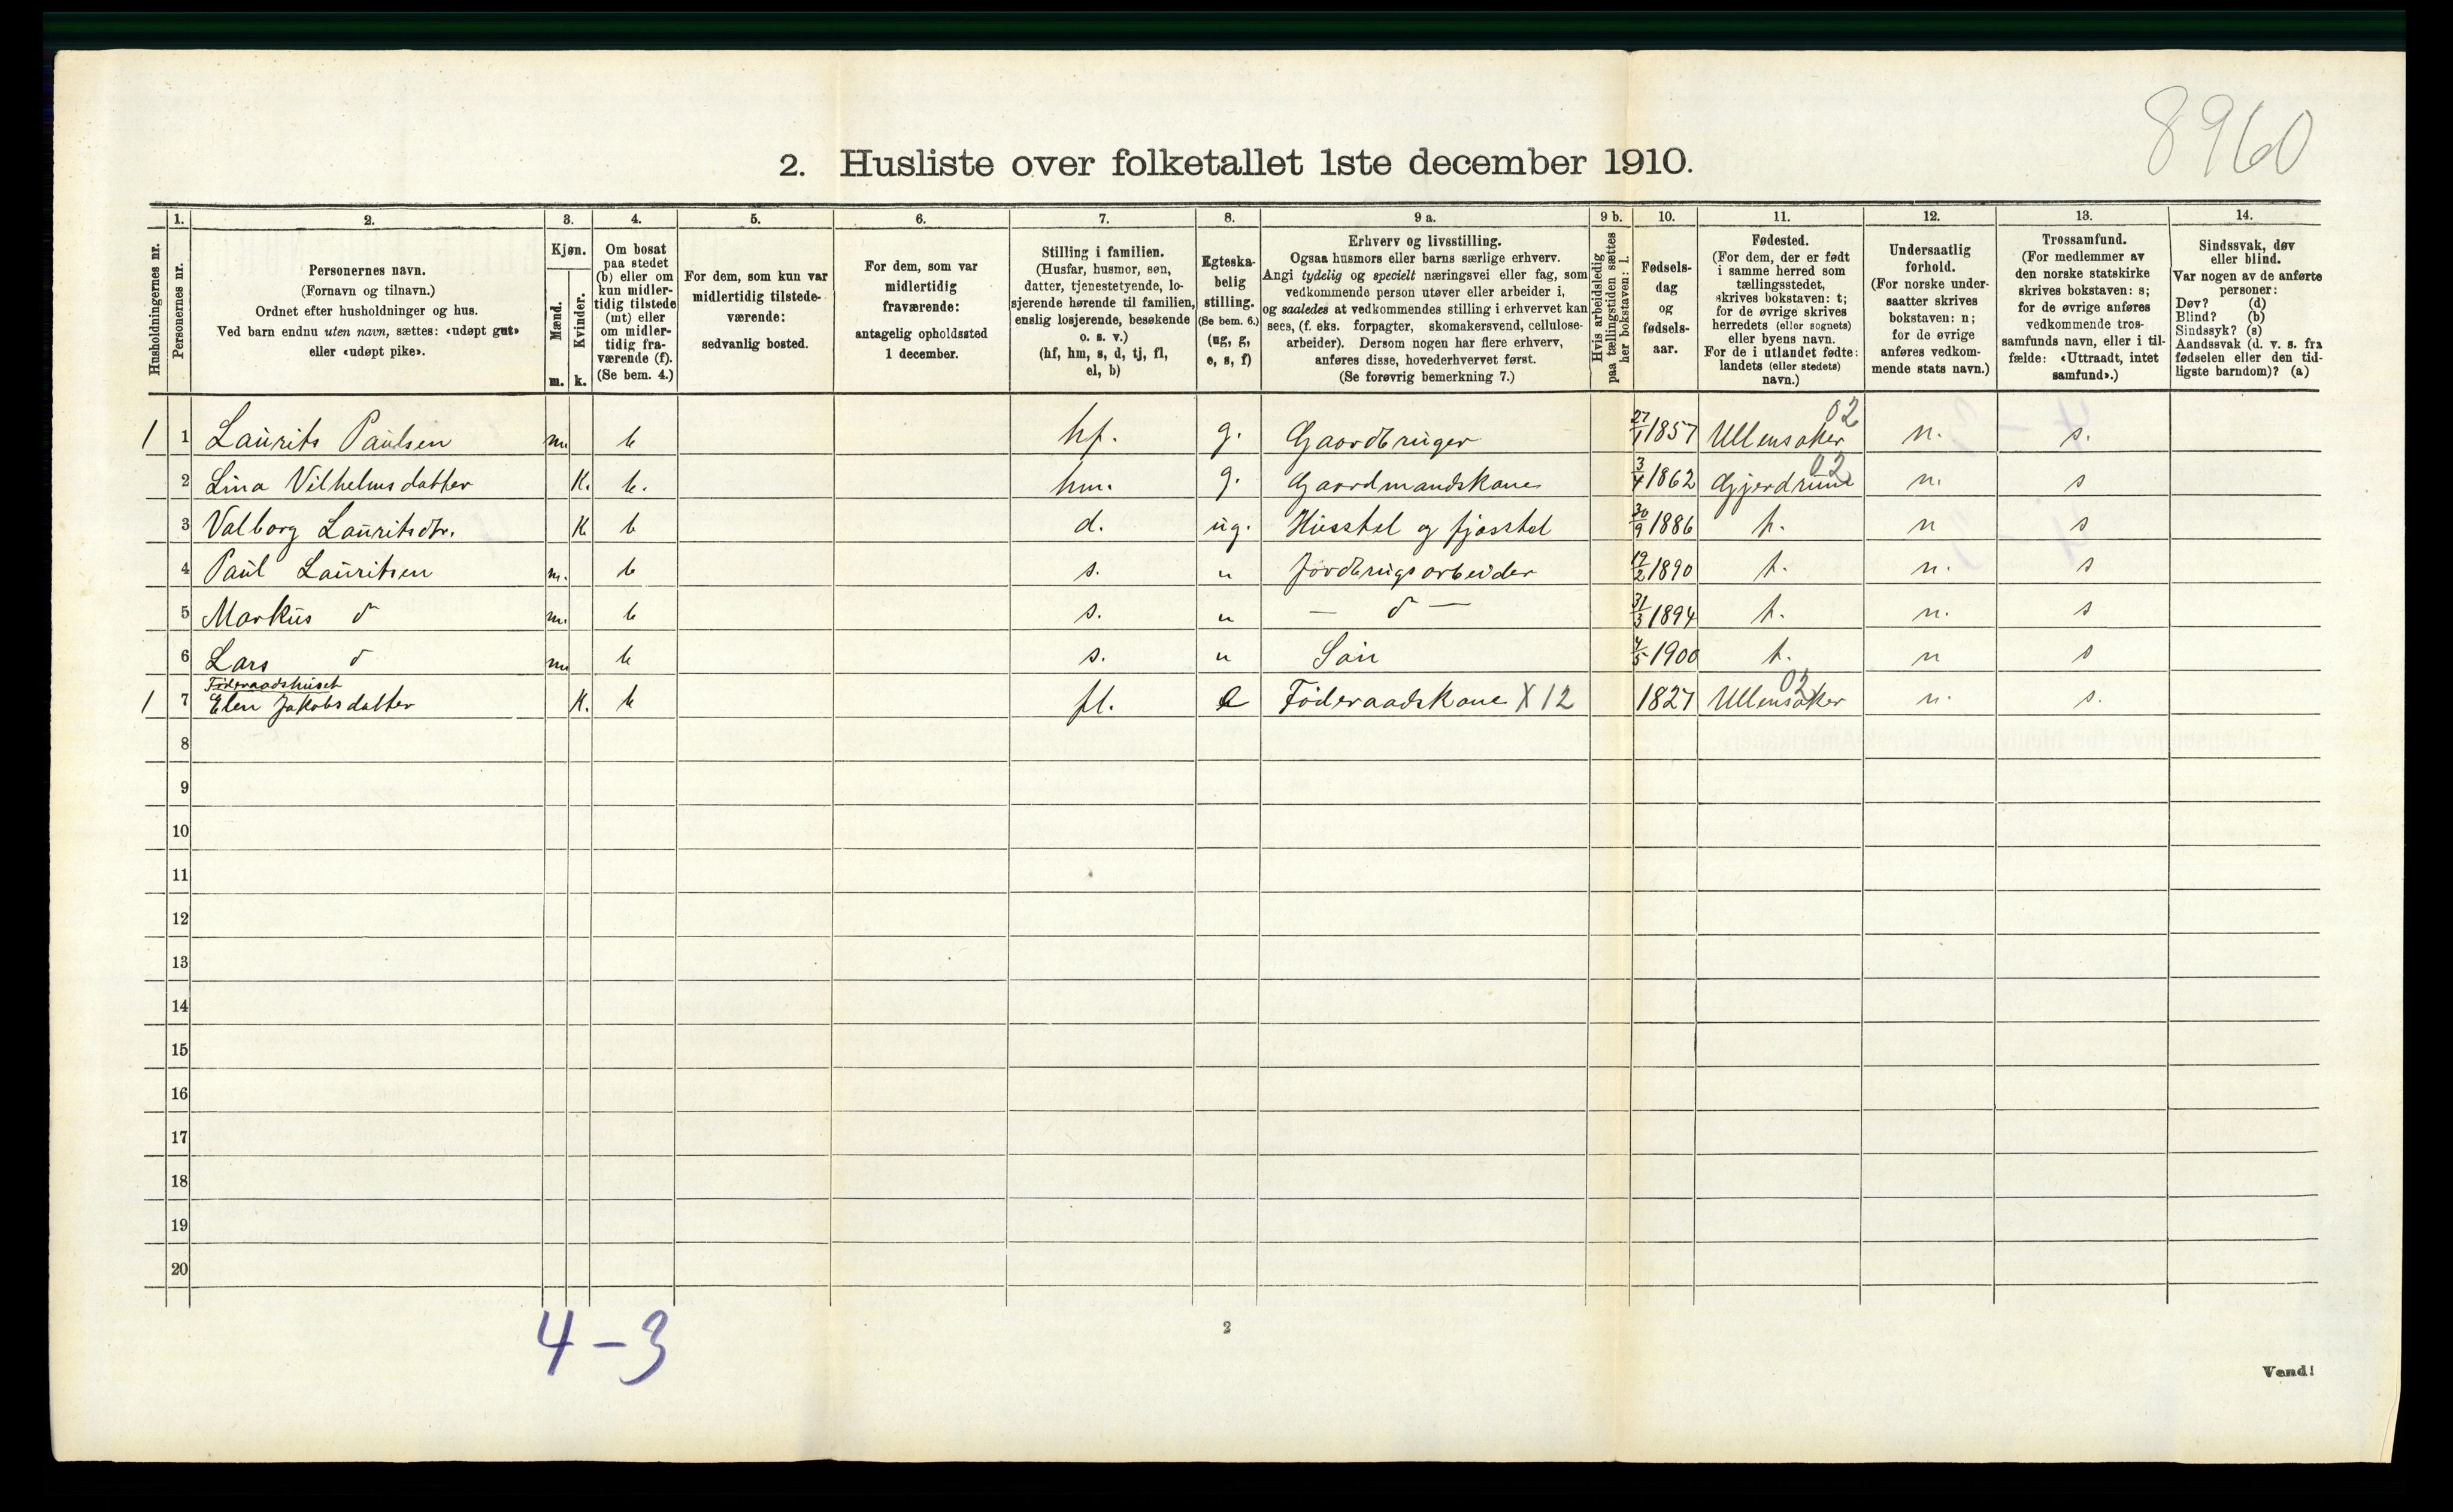 8960
2. Husliste over folketallet 1ste december 1910.
1. 2. 3. 4. 5. 6. 7. 8. 9 a. 9 b. 10. 11. 12. 13. 14.
Husholdningernes nr.
Personernes nr.
Personernes navn.
(Fornavn og tilnavn.)
Ordnet efter husholdninger og hus.
Ved barn endnu uten navn, sættes: «udøpt gut»
eller «udøpt pike».
Kjøn.
Mænd.
m.
Kvinder.
k.
Om bosat
paa stedet
(b) eller om
kun midler-
tidig tilstede
(mt) eller
om midler-
tidig fra-
værende (f).
(Se bem. 4.)
For dem, som kun var
midlertidig tilstede-
værende:
sedvanlig bosted.
For dem, som var
midlertidig
fraværende:
antagelig opholdssted
1 december.
Stilling i familien.
(Husfar, husmor, søn,
datter, tjenestetyende, lo-
sjerende hørende til familien,
enslig losjerende, besøkende
o. s. v.)
(hf, hm, s, d, tj, fl,
el, b)
Egteska-
belig
stilling.
(Se bem. 6.)
(ug, g,
e, s, f)
Erhverv og livsstilling.
Ogsaa husmors eller barns særlige erhverv.
Angi tydelig og specielt næringsvei eller fag, som
vedkommende person utøver eller arbeider i,
og saaledes at vedkommendes stilling i erhvervet kan
sees, (f. eks. forpagter, skomakersvend, cellulose-
arbeider). Dersom nogen har flere erhverv,
anføres disse, hovederhvervet først.
(Se forøvrig bemerkning 7.)
Hvis arbeidsledig
paa tællingstiden sættes
her bokstaven: l.
Fødsels-
dag
og
fødsels-
aar.
Fødested.
(For dem, der er født
i samme herred som
tællingsstedet,
skrives bokstaven: t;
for de øvrige skrives
herredets (eller sognets)
eller byens navn.
For de i utlandet fødte:
landets (eller stedets)
navn.)
Undersaatlig
forhold.
(For norske under-
saatter skrives
bokstaven: n;
for de øvrige
anføres vedkom-
mende stats navn.)
Trossamfund.
(For medlemmer av
den norske statskirke
skrives bokstaven: s;
for de øvrige anføres
vedkommende tros-
samfunds navn, eller i til-
fælde: «Uttraadt, intet
samfund».)
Sindssvak, døv
eller blind.
Var nogen av de anførte
personer:
Døv? (d)
Blind? (b)
Sindssyk? (s)
Aandssvak (d. v. s. fra
fødselen eller den tid-
ligste barndom)? (a)
02
1 1 Laurits Paulsen m. b hf. g. Gaardbruger 27/1 1857 Ullensaker n. s.
02
2 Lina Vilhelmsdatter K. b. hm. g. Gaardmandskone 3/4 1862 Gjerdrum n. s
3 Valborg Lauritsdtr. K b d. ug. Husstel og fjøsstel 30/9 1886 t. n s
4 Paul Lauritsen m. b s. " Jordbrugsarbeider 19/2 1890 t. n. s
5 Markus d m. b s. " — d — 31/3 1894 t. n. s
6 Lars d m b s. " Søn 4/5 1900 t. n s
Föderaadshuset 02
1 7 Elen Jakobsdatter K. b fl. e Föderaadskone X 12 1827 Ullensaker n. s.
8
9
10
11
12
13
14
15
16
17
18
19
20
4 – 3
2
Vend!